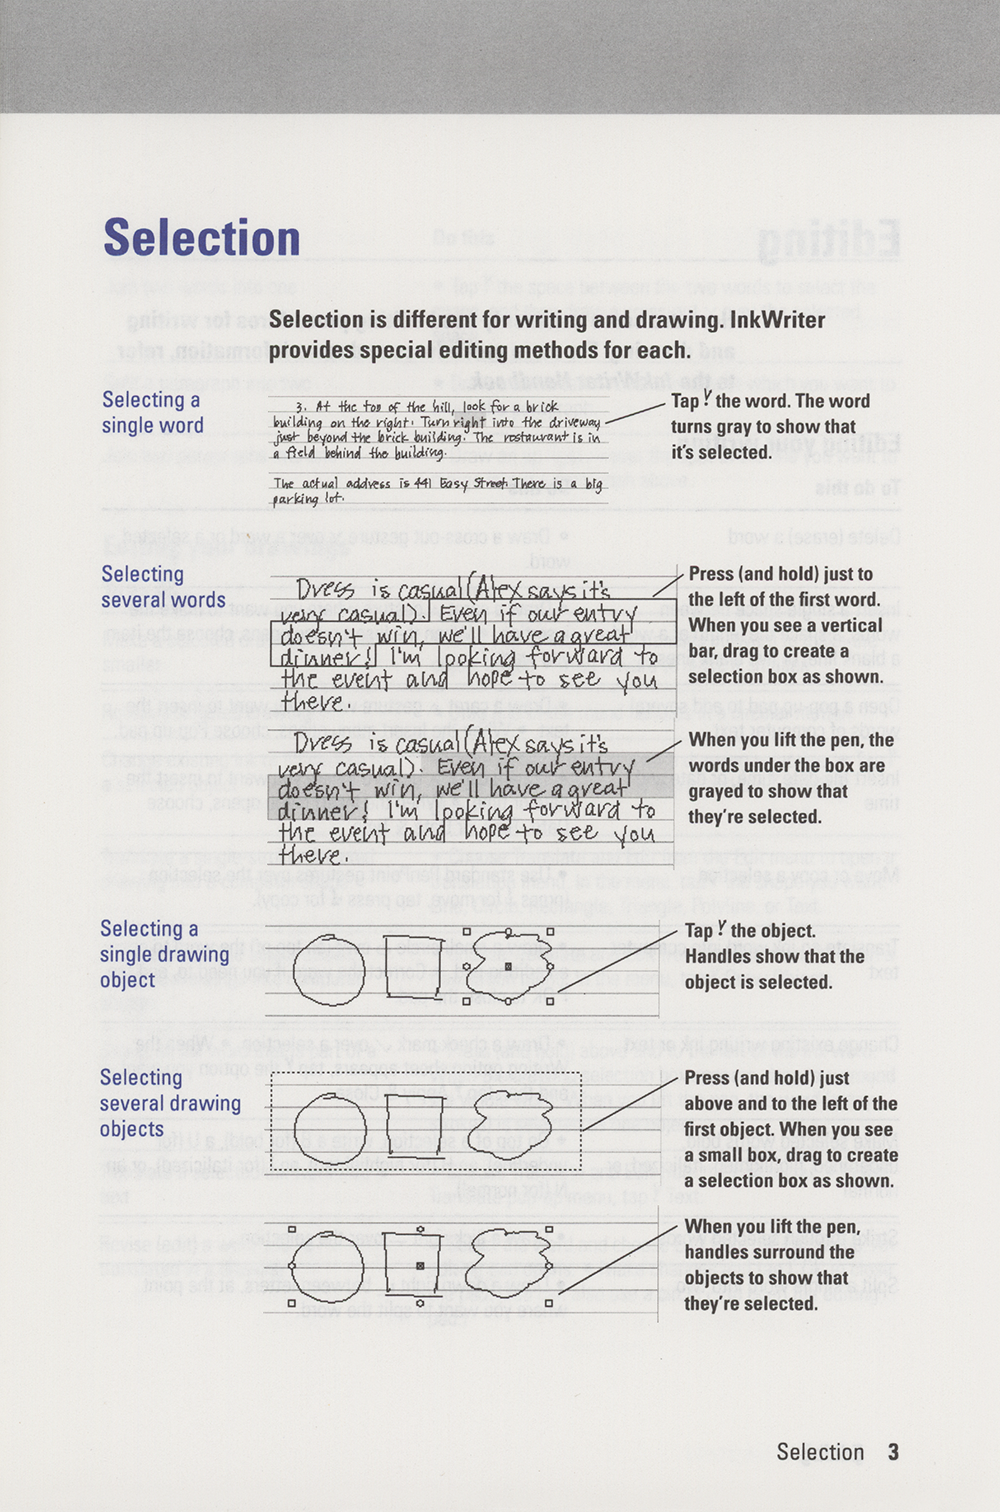 Selection
Selection is different for writing and drawing. InkWriter
provides special editing methods for each.
Selecting a
single word
3. At the top of the hill, look for a brick
building on the right. Turn right into the driveway
just beyond the brick building. The restaurant is in
a field behind the building.
The actual address is 441 Easy Street. There is a big
parking lot.
Tap the word. The word
turns gray to show that
it's selected.
Selecting
several words
Dress is casual (Alex says it's
very casual). Even if our entry
doesn't win, we'll have a great
dinner! I'm looking forward to
the event and hope to see you
there.
Press (and hold) just to
the left of the first word.
When you see a vertical
bar, drag to create a
selection box as shown.
Dress is casual (Alex says it's
very casual). Even if our entry
doesn't win, we'll have a great
dinner! I'm looking forward to
the event and hope to see you
there.
When you lift the pen, the
words under the box are
grayed to show that
they're selected.
Selecting a
single drawing
object
Tap the object.
Handles show that the
object is selected.
Selecting
several drawing
objects
Press (and hold) just
above and to the left of the
first object. When you see
a small box, drag to create
a selection box as shown.
When you lift the pen,
handles surround the
objects to show that
they're selected.
Selection 3